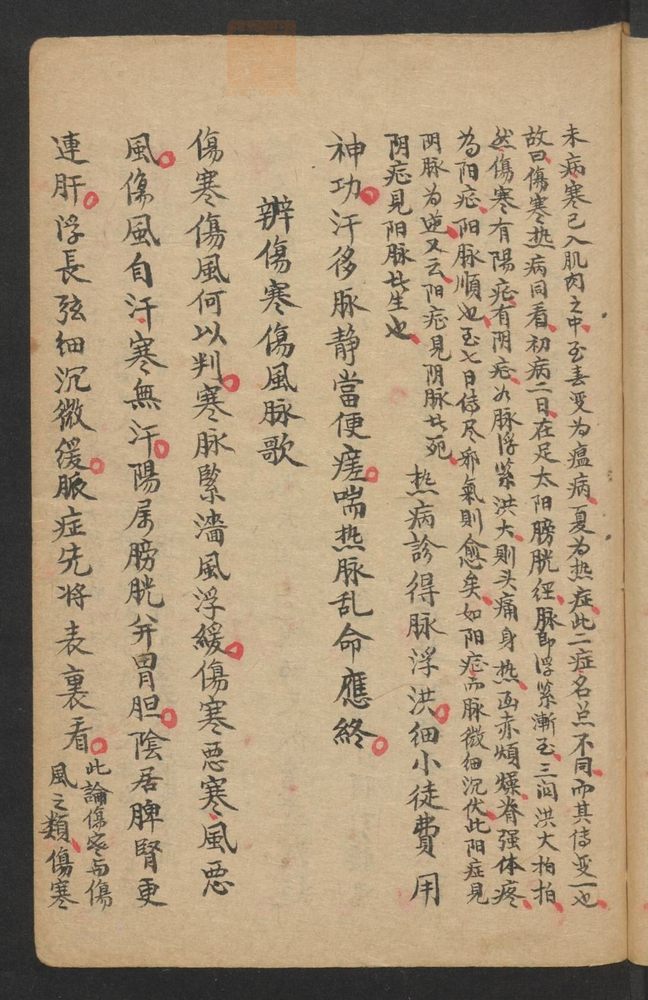 未病寒已入肌肉之中至春变为瘟病夏为热症此二症名虽不同而其传变一也
故曰伤寒热病同看初病二日在足太阳膀胱经脉即浮紧渐至三阎洪大拍拍
然傷寒有陽症有阴症如脉浮紧洪大则头痛身热面赤烦燥脊强体疼
为阳症阳脉順也至七日传尽邪氣則愈矣如阳症而脉微细沉伏此阳症見
阴脉为逆又云阳症見阴脉者死
阴症見阳脉者生也
热病診得脉浮洪细小徒費用
神功汗後脉静當便瘥喘热脉乱命應終
辨傷寒傷風脉歌
傷寒傷風何以判寒脉緊濇風浮緩傷寒恶寒風恶
風傷風自汗寒無汗陽属膀胱并胃胆陰居脾腎更
連肝浮長弦细沉微緩脈症先将表裏看
此論傷寒与傷
風之類傷寒